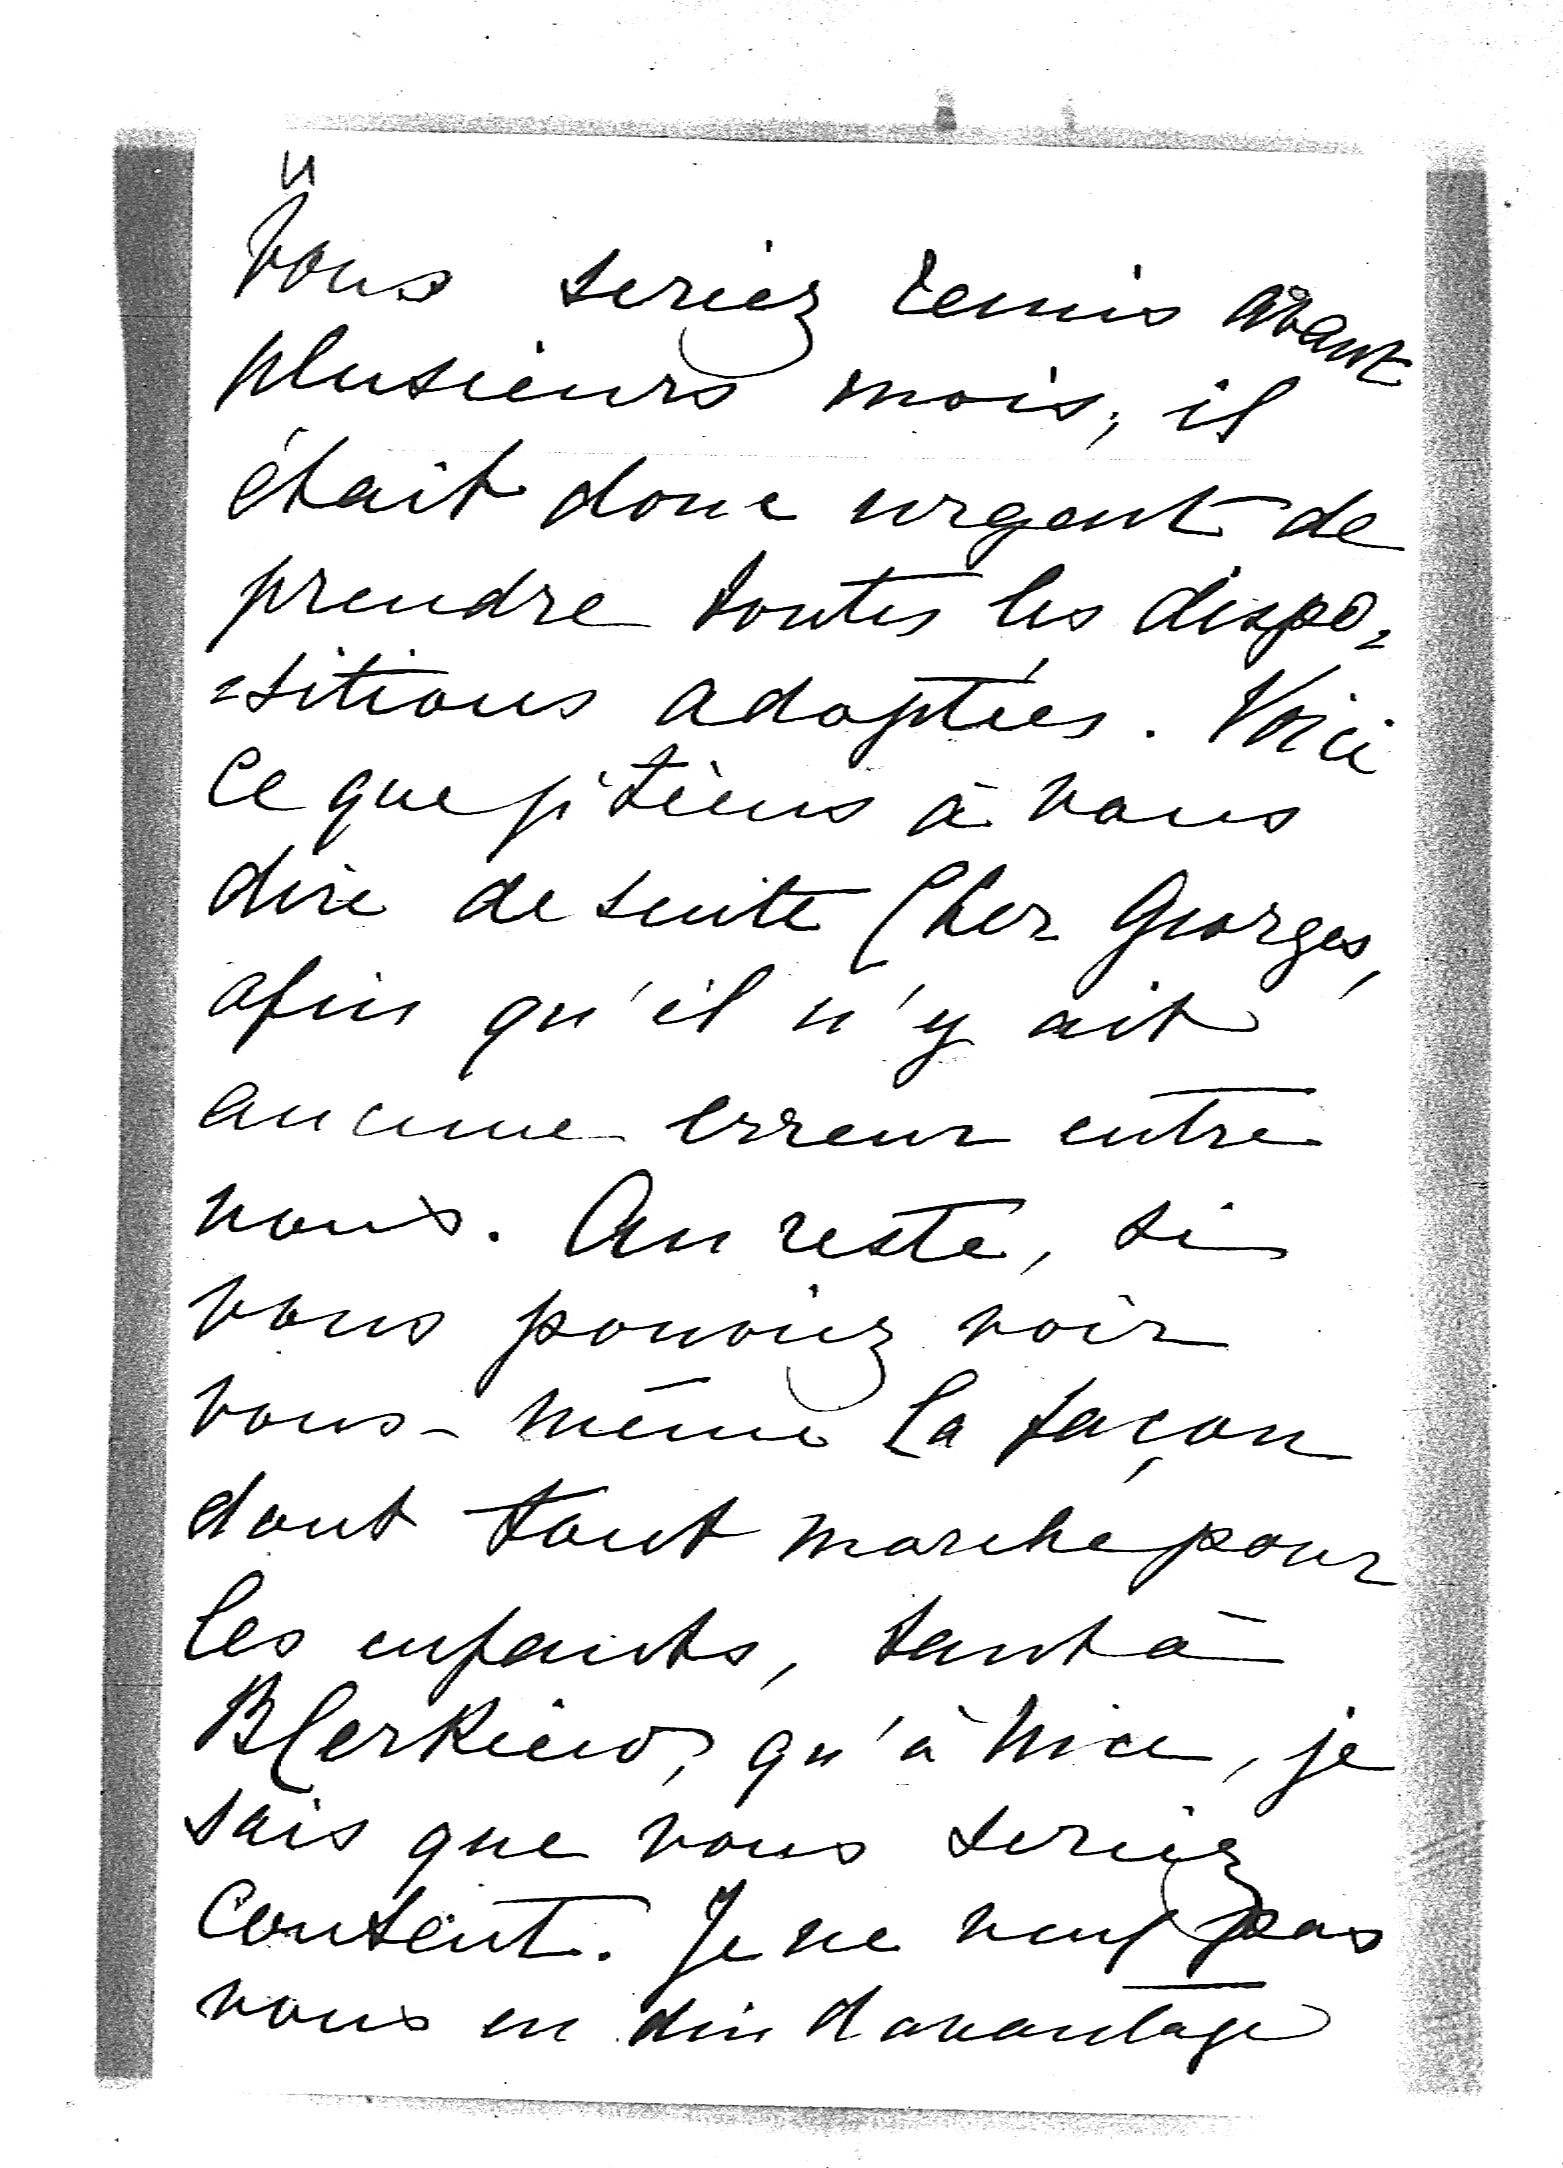 vous seriez remis avant
plusieurs mois, il
était donc urgent de
prendre toutes les dispo=
=sitions adoptées. Voici
ce que je tiens à vous
dire de suite Cher Georges,
afin qu'il n'y ait
aucune erreur entre
nous. Au reste, si
vous pouviez voir
vous-même la façon
dont tout marche pour
les enfants, tant à
qu'à Nice, je
sais que vous seriez
content. Je ne veux pas
vous en dire davantage